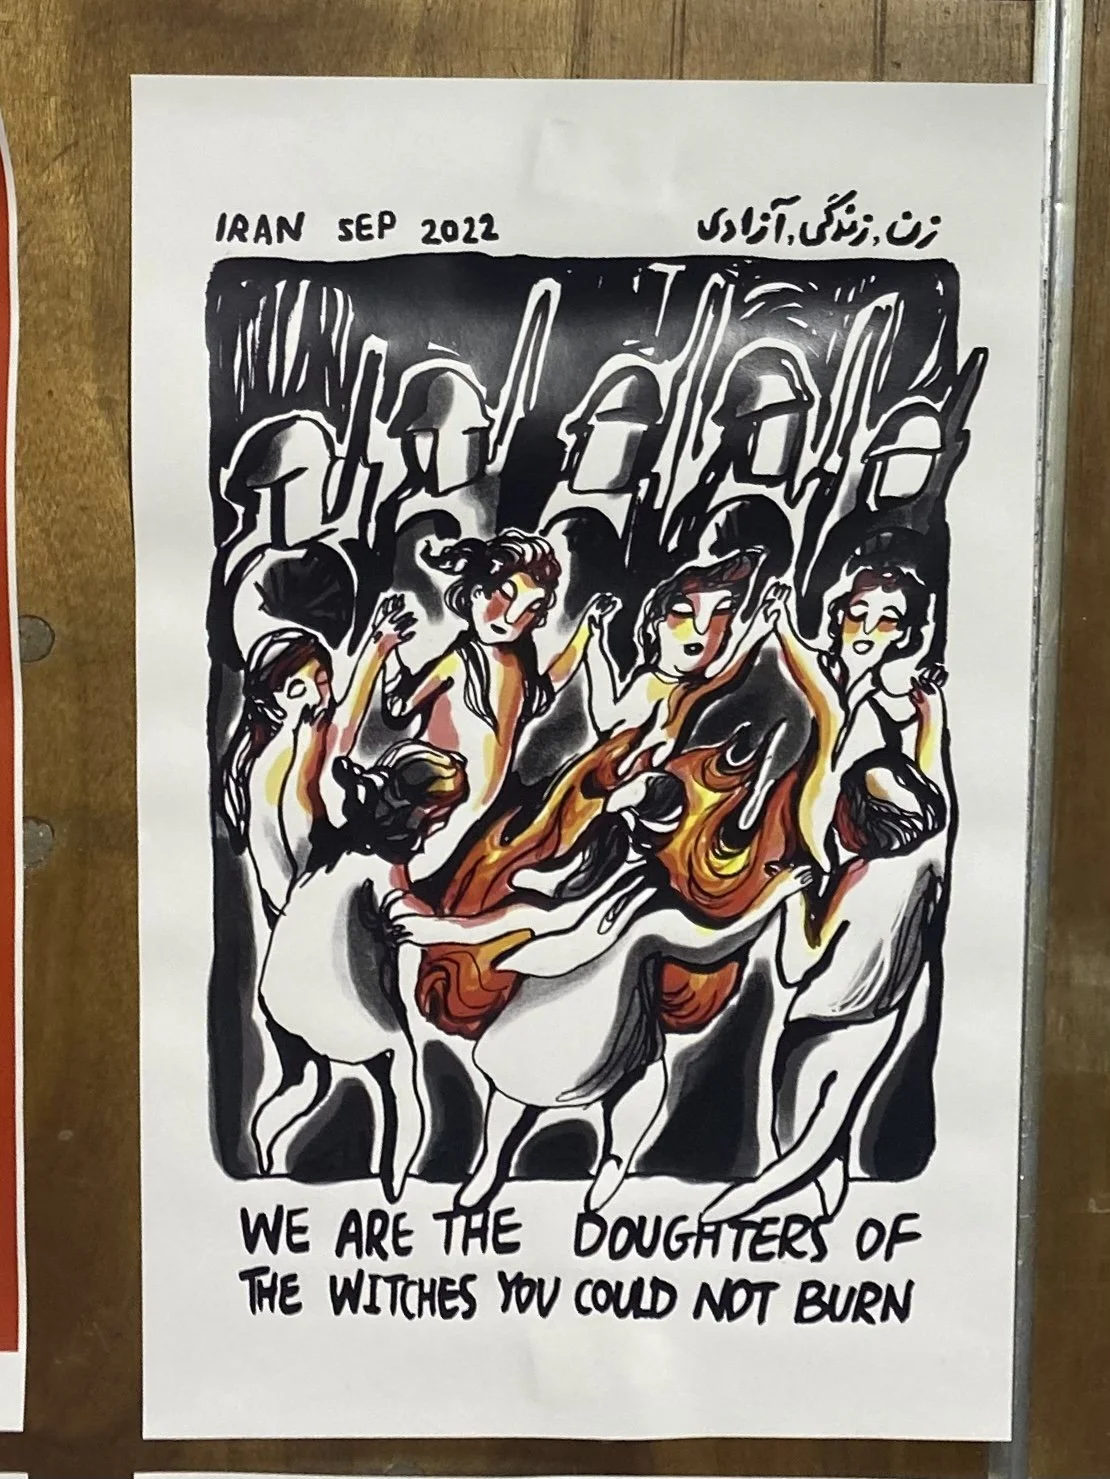 IRAN SEP 2022
زن, زندگی, آزادی
WE ARE THE DOUGHTERS OF
THE WITCHES YOU COULD NOT BURN